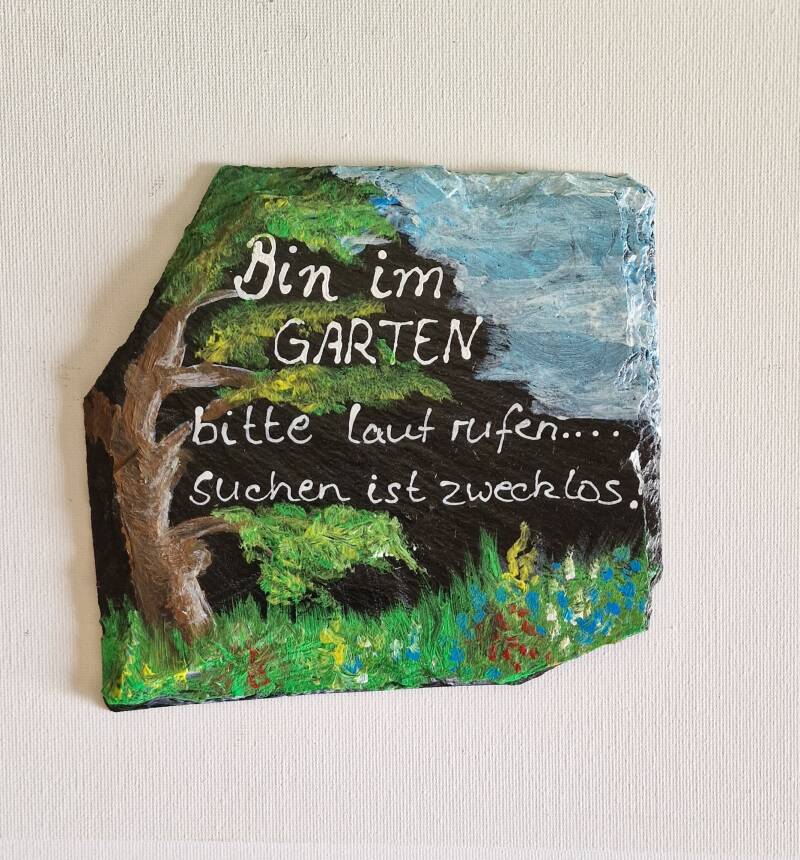 Bin im
GARTEN
bitte laut rufen....
suchen ist zwecklos!